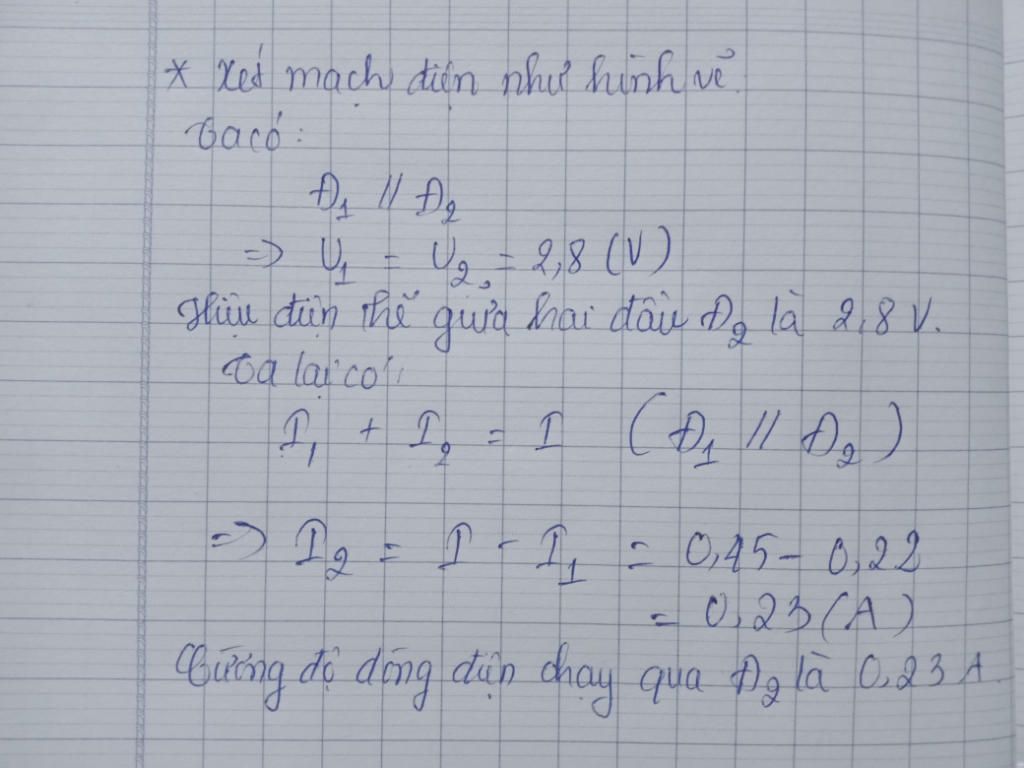 * Xét mạch điện như hình vẽ.
Ta có:
Đ1 // Đ2
=> U1 = U2 = 2,8 (V)
Hiệu điện thế giữa hai đầu Đ2 là 2,8 V.
Ta lại có:
I1 + I2 = I (Đ1 // Đ2)
=> I2 = I - I1 = 0,45 - 0,22
= 0,23 (A)
Cường độ dòng điện chạy qua Đ2 là 0,23 A.